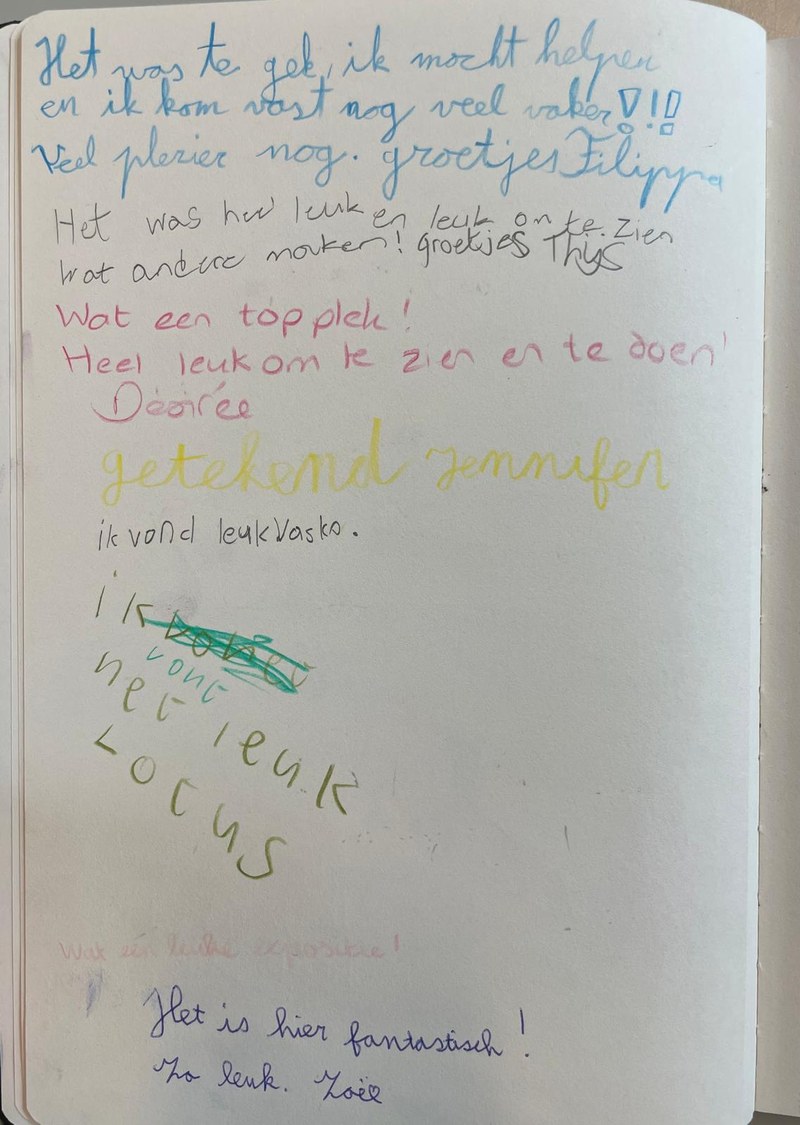 Het was te gek, ik mocht helpen
en ik kom vast nog veel vaker!!!
Veel plezier nog. groetjes Filippa
Het was heel leuk en leuk om te zien
wat andere maken! groetjes Thijs
Wat een topplek!
Heel leuk om te zien en te doen!
Désirée
getekend Jennifer
ik vond leuk Vasko.
ik
vont
het leuk
Locus
Wat een leuke expositie!
Het is hier fantastisch!
Zo leuk. Zoë